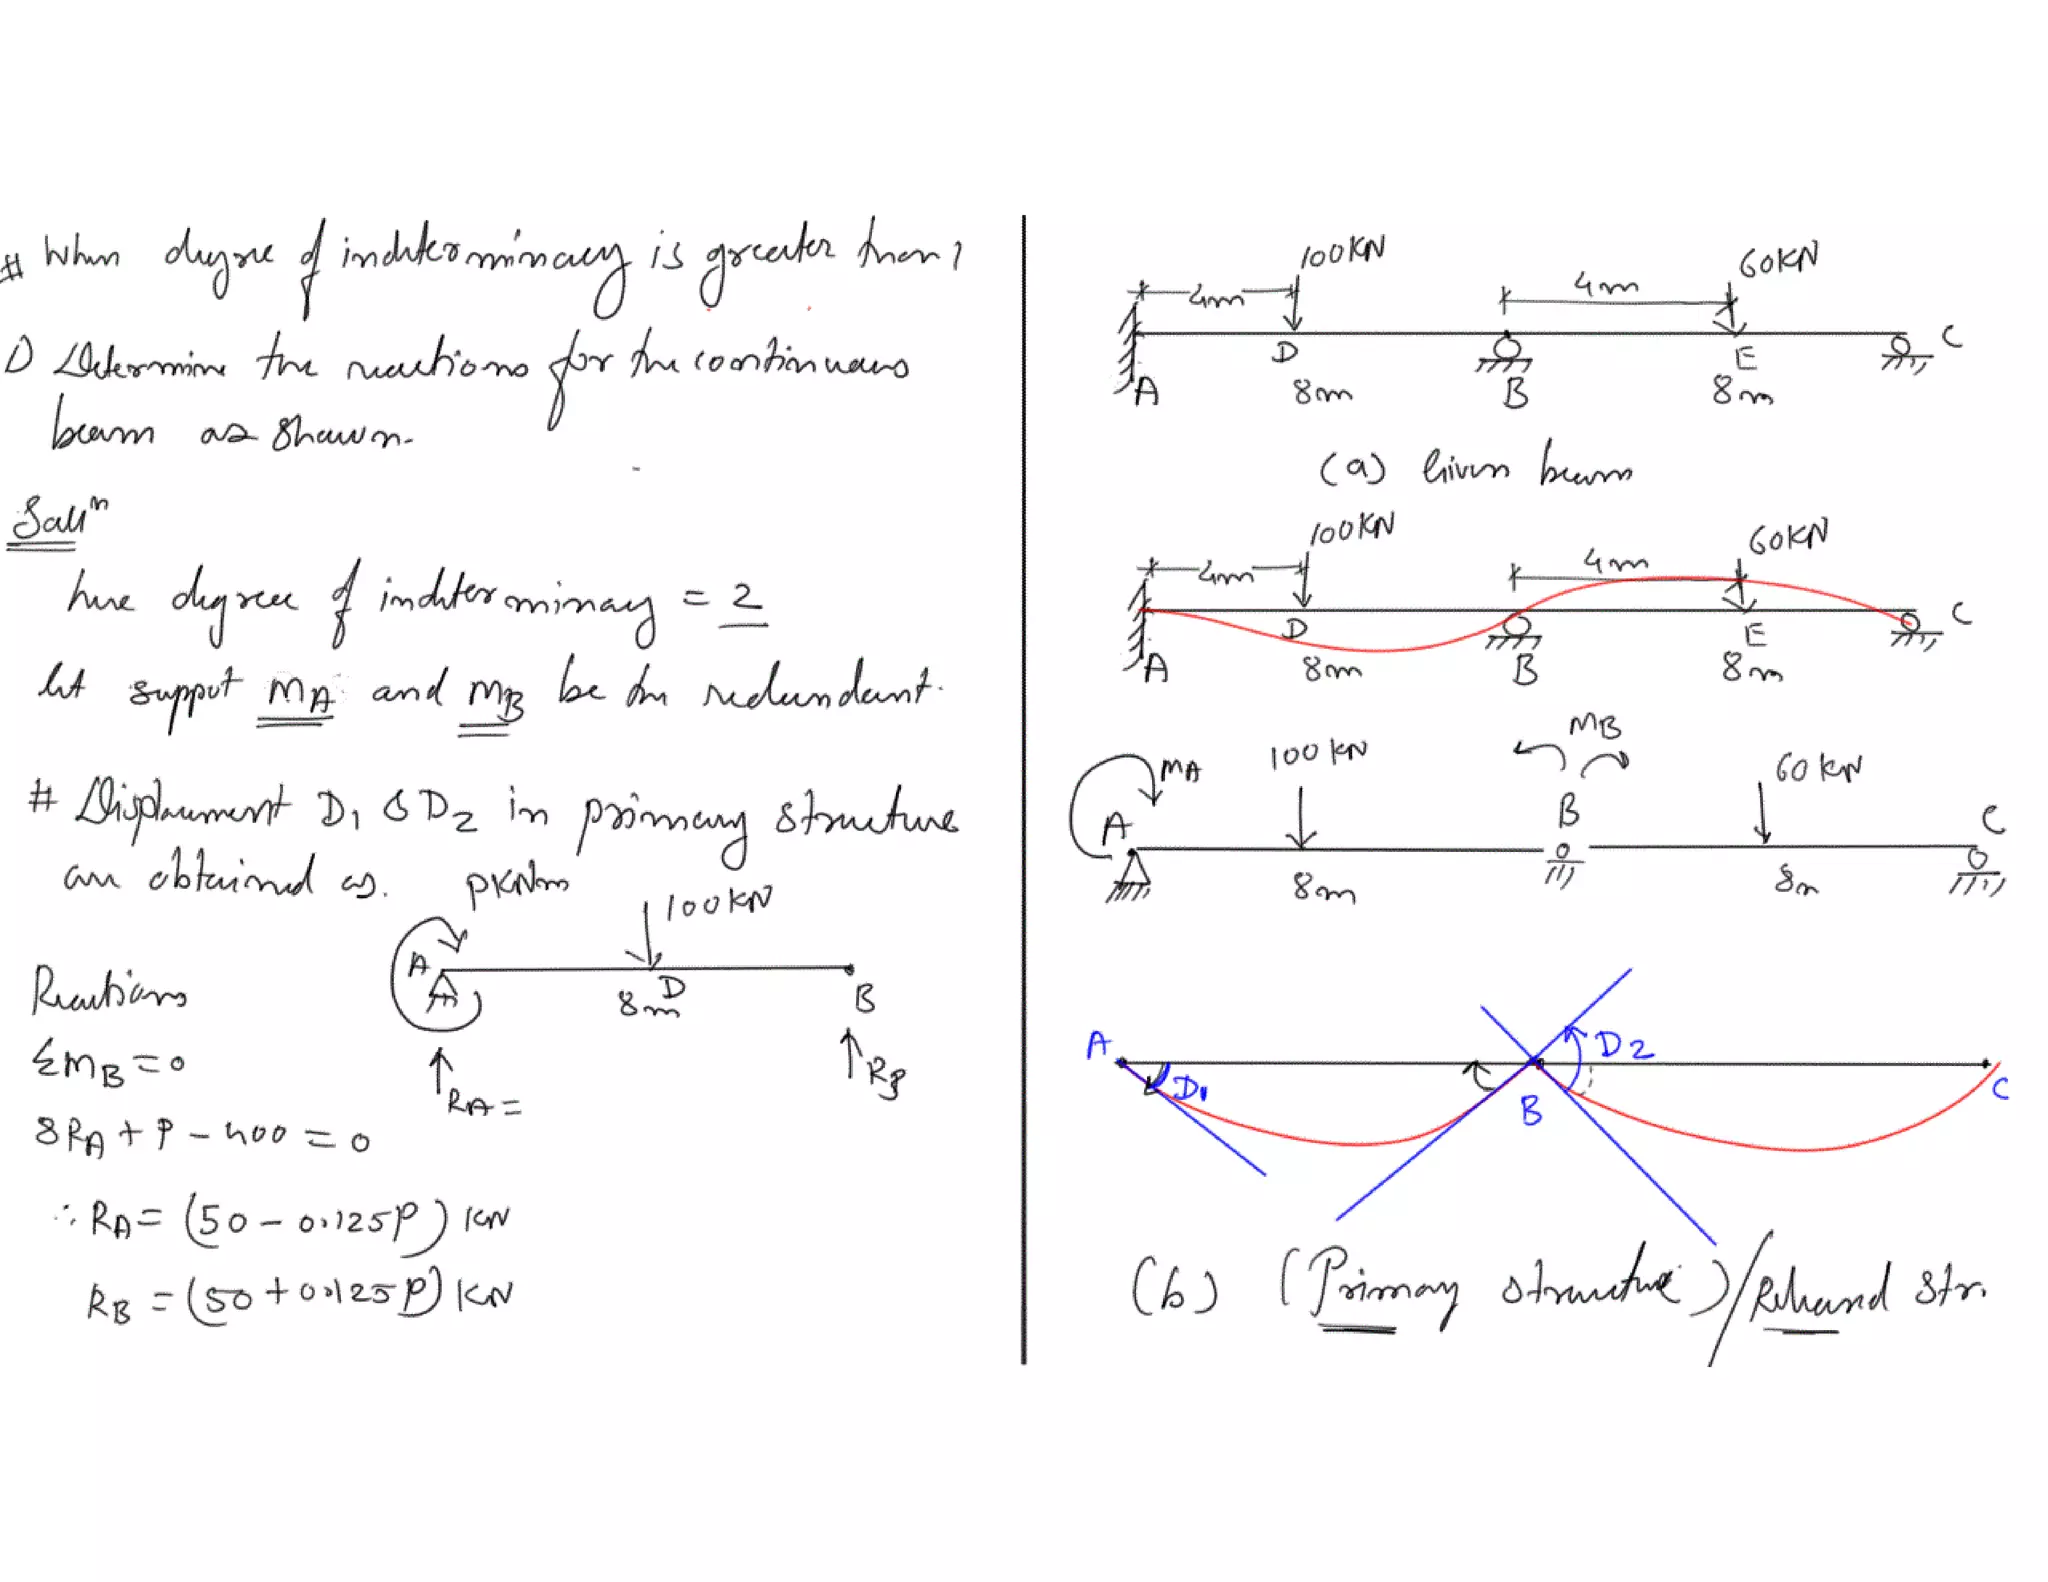 # When degree of indeterminacy is greater than 1
1) Determine the reactions for the continuous
beam as shown.
Solⁿ
here degree of indeterminacy = 2
let support MA and MB be the redundant.
# Displacement D1 & D2 in primary structure
are obtained as.
PKNm
100KN
A
D
8m
B
Reactions
ΣMB=0
RA=
RB
8RA + P - 400 = 0
∴ RA = (50 - 0.125P) KN
RB = (50 + 0.125P) KN
100KN
60KN
4m
4m
A
D
8m
B
E
8m
C
(a) Given beam
100KN
60KN
4m
4m
A
D
8m
B
E
8m
C
MB
MA
100 KN
60 KN
A
B
C
8m
8m
A
D1
B
D2
C
(b) (Primary structure)/Released Str.